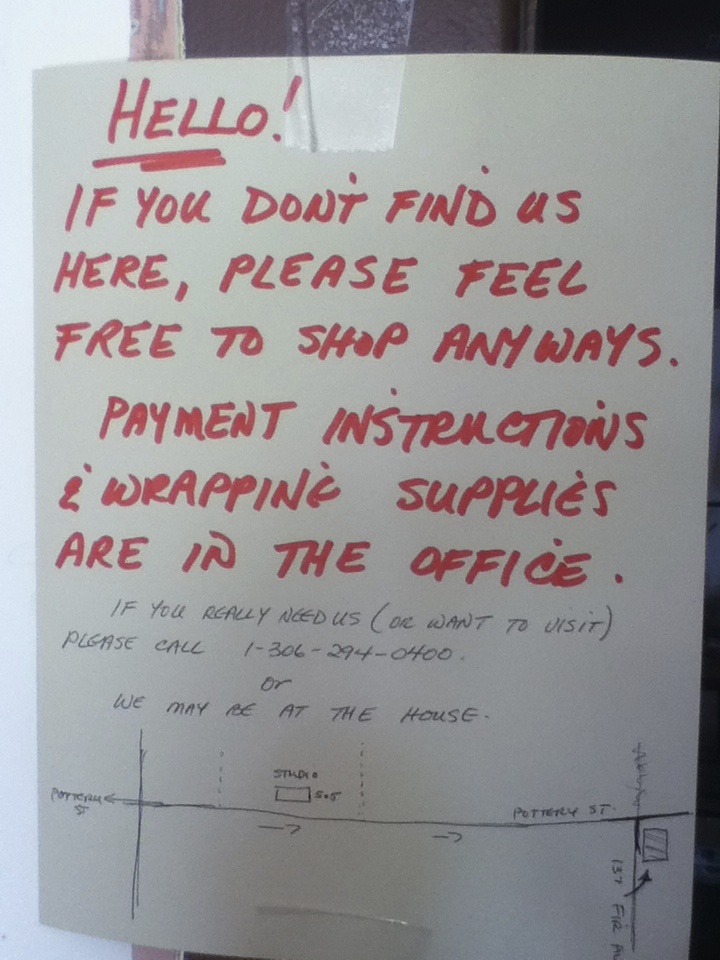 HELLO!
IF YOU DON'T FIND US
HERE, PLEASE FEEL
FREE TO SHOP ANYWAYS.
PAYMENT INSTRUCTIONS
& WRAPPING SUPPLIES
ARE IN THE OFFICE.
IF YOU REALLY NEED US (OR WANT TO VISIT)
PLEASE CALL 1-306-294-0400.
or
WE MAY BE AT THE HOUSE.
STUDIO
505
POTTERY
ST
POTTERY ST.
FIR